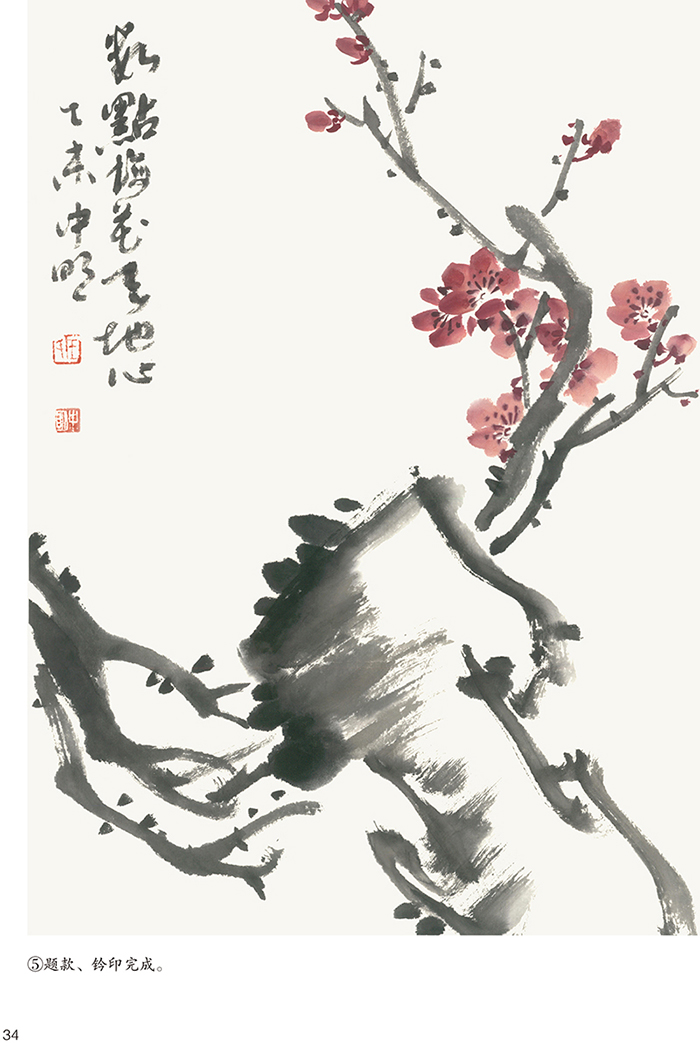 數點梅花天地心
乙未中明
⑤题款、钤印完成。
34